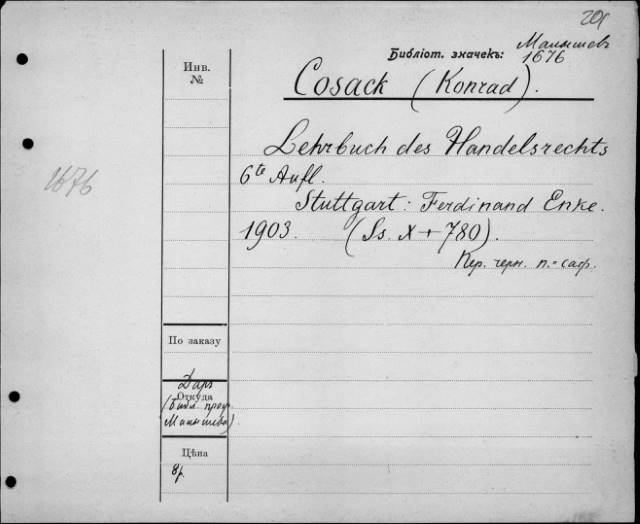 Малышев
Библіот. значекъ: 1676
Инв.
№
Cosack (Konrad).
Lehrbuch des Handelsrechts
6te Aufl.
1676
Stuttgart: Ferdinand Enke.
1903. (Ss. X + 780).
Кор. черн. п.=саф.
По заказу
Даръ
Откуда
(библ. проф.
Малышева)
Цѣна
8р.